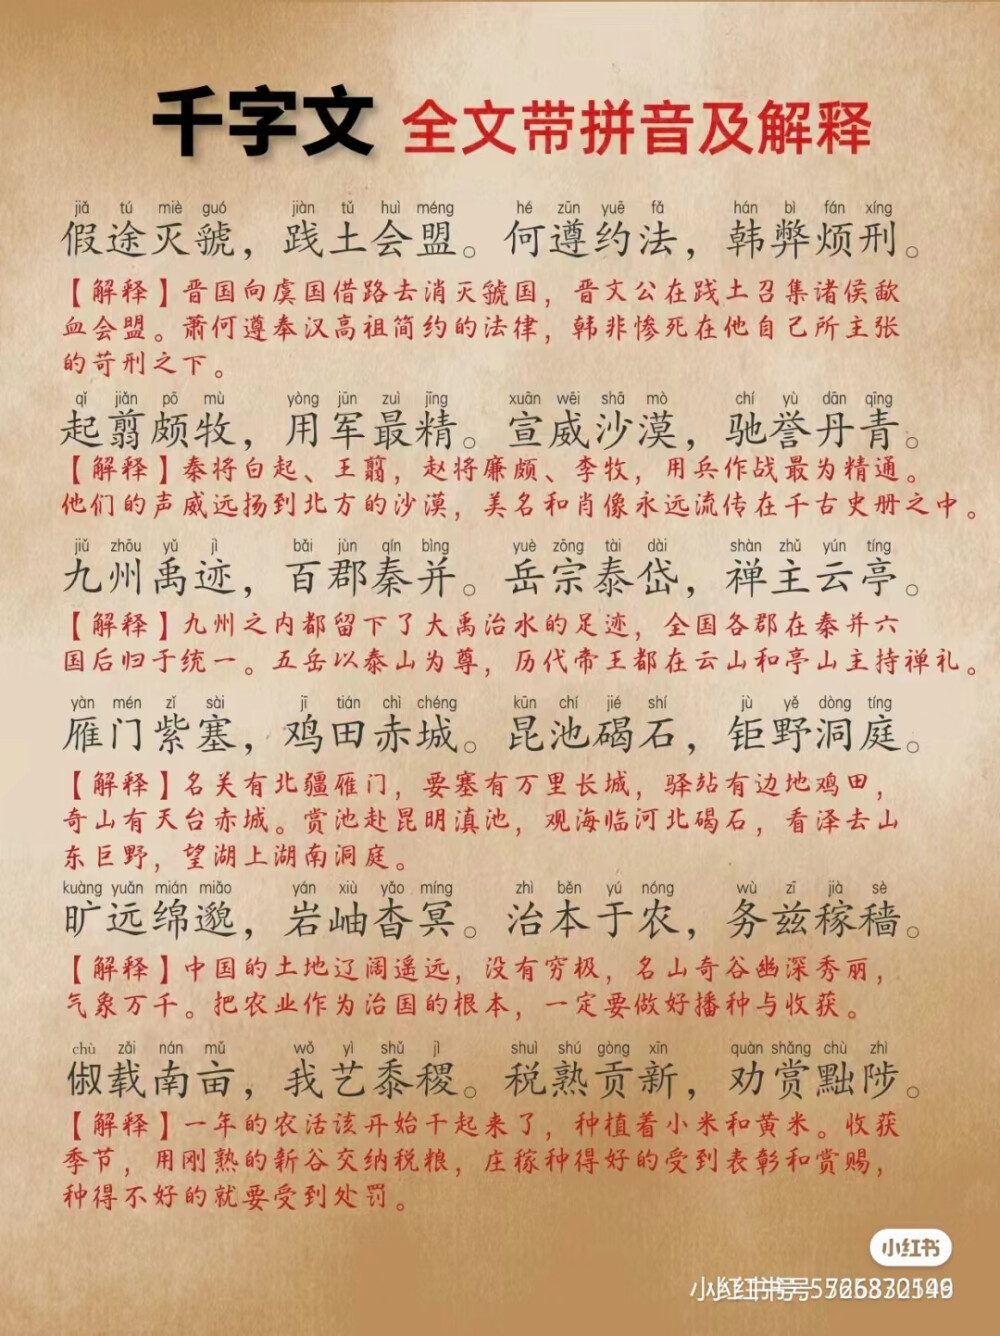 千字文 全文带拼音及解释
jiǎ tú miè guó jiàn tǔ huì méng hé zūn yuē fǎ hán bì fán xíng
假途灭虢，践土会盟。何遵约法，韩弊烦刑。
【解释】晋国向虞国借路去消灭虢国，晋文公在践土召集诸侯歃
血会盟。萧何遵奉汉高祖简约的法律，韩非惨死在他自己所主张
的苛刑之下。
qǐ jiǎn pō mù yòng jūn zuì jīng xuān wēi shā mò chí yù dān qīng
起翦颇牧，用军最精。宣威沙漠，驰誉丹青。
【解释】秦将白起、王翦，赵将廉颇、李牧，用兵作战最为精通。
他们的声威远扬到北方的沙漠，美名和肖像永远流传在千古史册之中。
jiǔ zhōu yǔ jì bǎi jùn qín bìng yuè zōng tài dài shàn zhǔ yún tíng
九州禹迹，百郡秦并。岳宗泰岱，禅主云亭。
【解释】九州之内都留下了大禹治水的足迹，全国各郡在秦并六
国后归于统一。五岳以泰山为尊，历代帝王都在云山和亭山主持禅礼。
yàn mén zǐ sài jī tián chì chéng kūn chí jié shí jù yě dòng tíng
雁门紫塞，鸡田赤城。昆池碣石，钜野洞庭。
【解释】名关有北疆雁门，要塞有万里长城，驿站有边地鸡田，
奇山有天台赤城。赏池赴昆明滇池，观海临河北碣石，看泽去山
东巨野，望湖上湖南洞庭。
kuàng yuǎn mián miǎo yán xiù yǎo míng zhì běn yú nóng wù zī jià sè
旷远绵邈，岩岫杳冥。治本于农，务兹稼穑。
【解释】中国的土地辽阔遥远，没有穷极，名山奇谷幽深秀丽，
气象万千。把农业作为治国的根本，一定要做好播种与收获。
chù zǎi nán mǔ wǒ yì shǔ jì shuì shú gòng xīn quàn shǎng chù zhì
俶载南亩，我艺黍稷。税熟贡新，劝赏黜陟。
【解释】一年的农活该开始干起来了，种植着小米和黄米。收获
季节，用刚熟的新谷交纳税粮，庄稼种得好的受到表彰和赏赐，
种得不好的就要受到处罚。
小红书